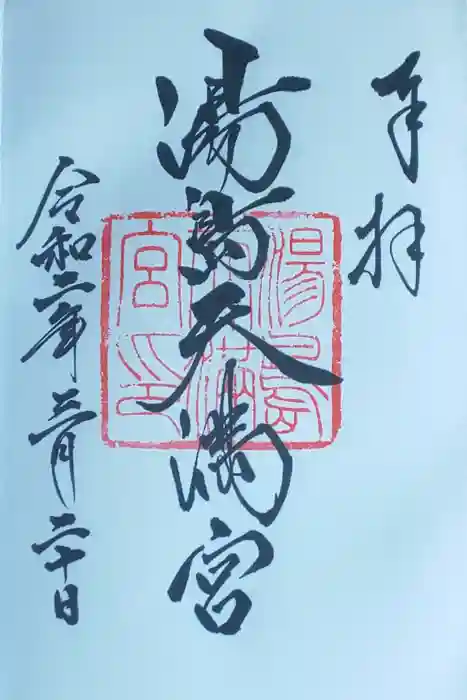 奉拝
湯島天満宮
令和二年三月二十日
湯島
天満
宮印